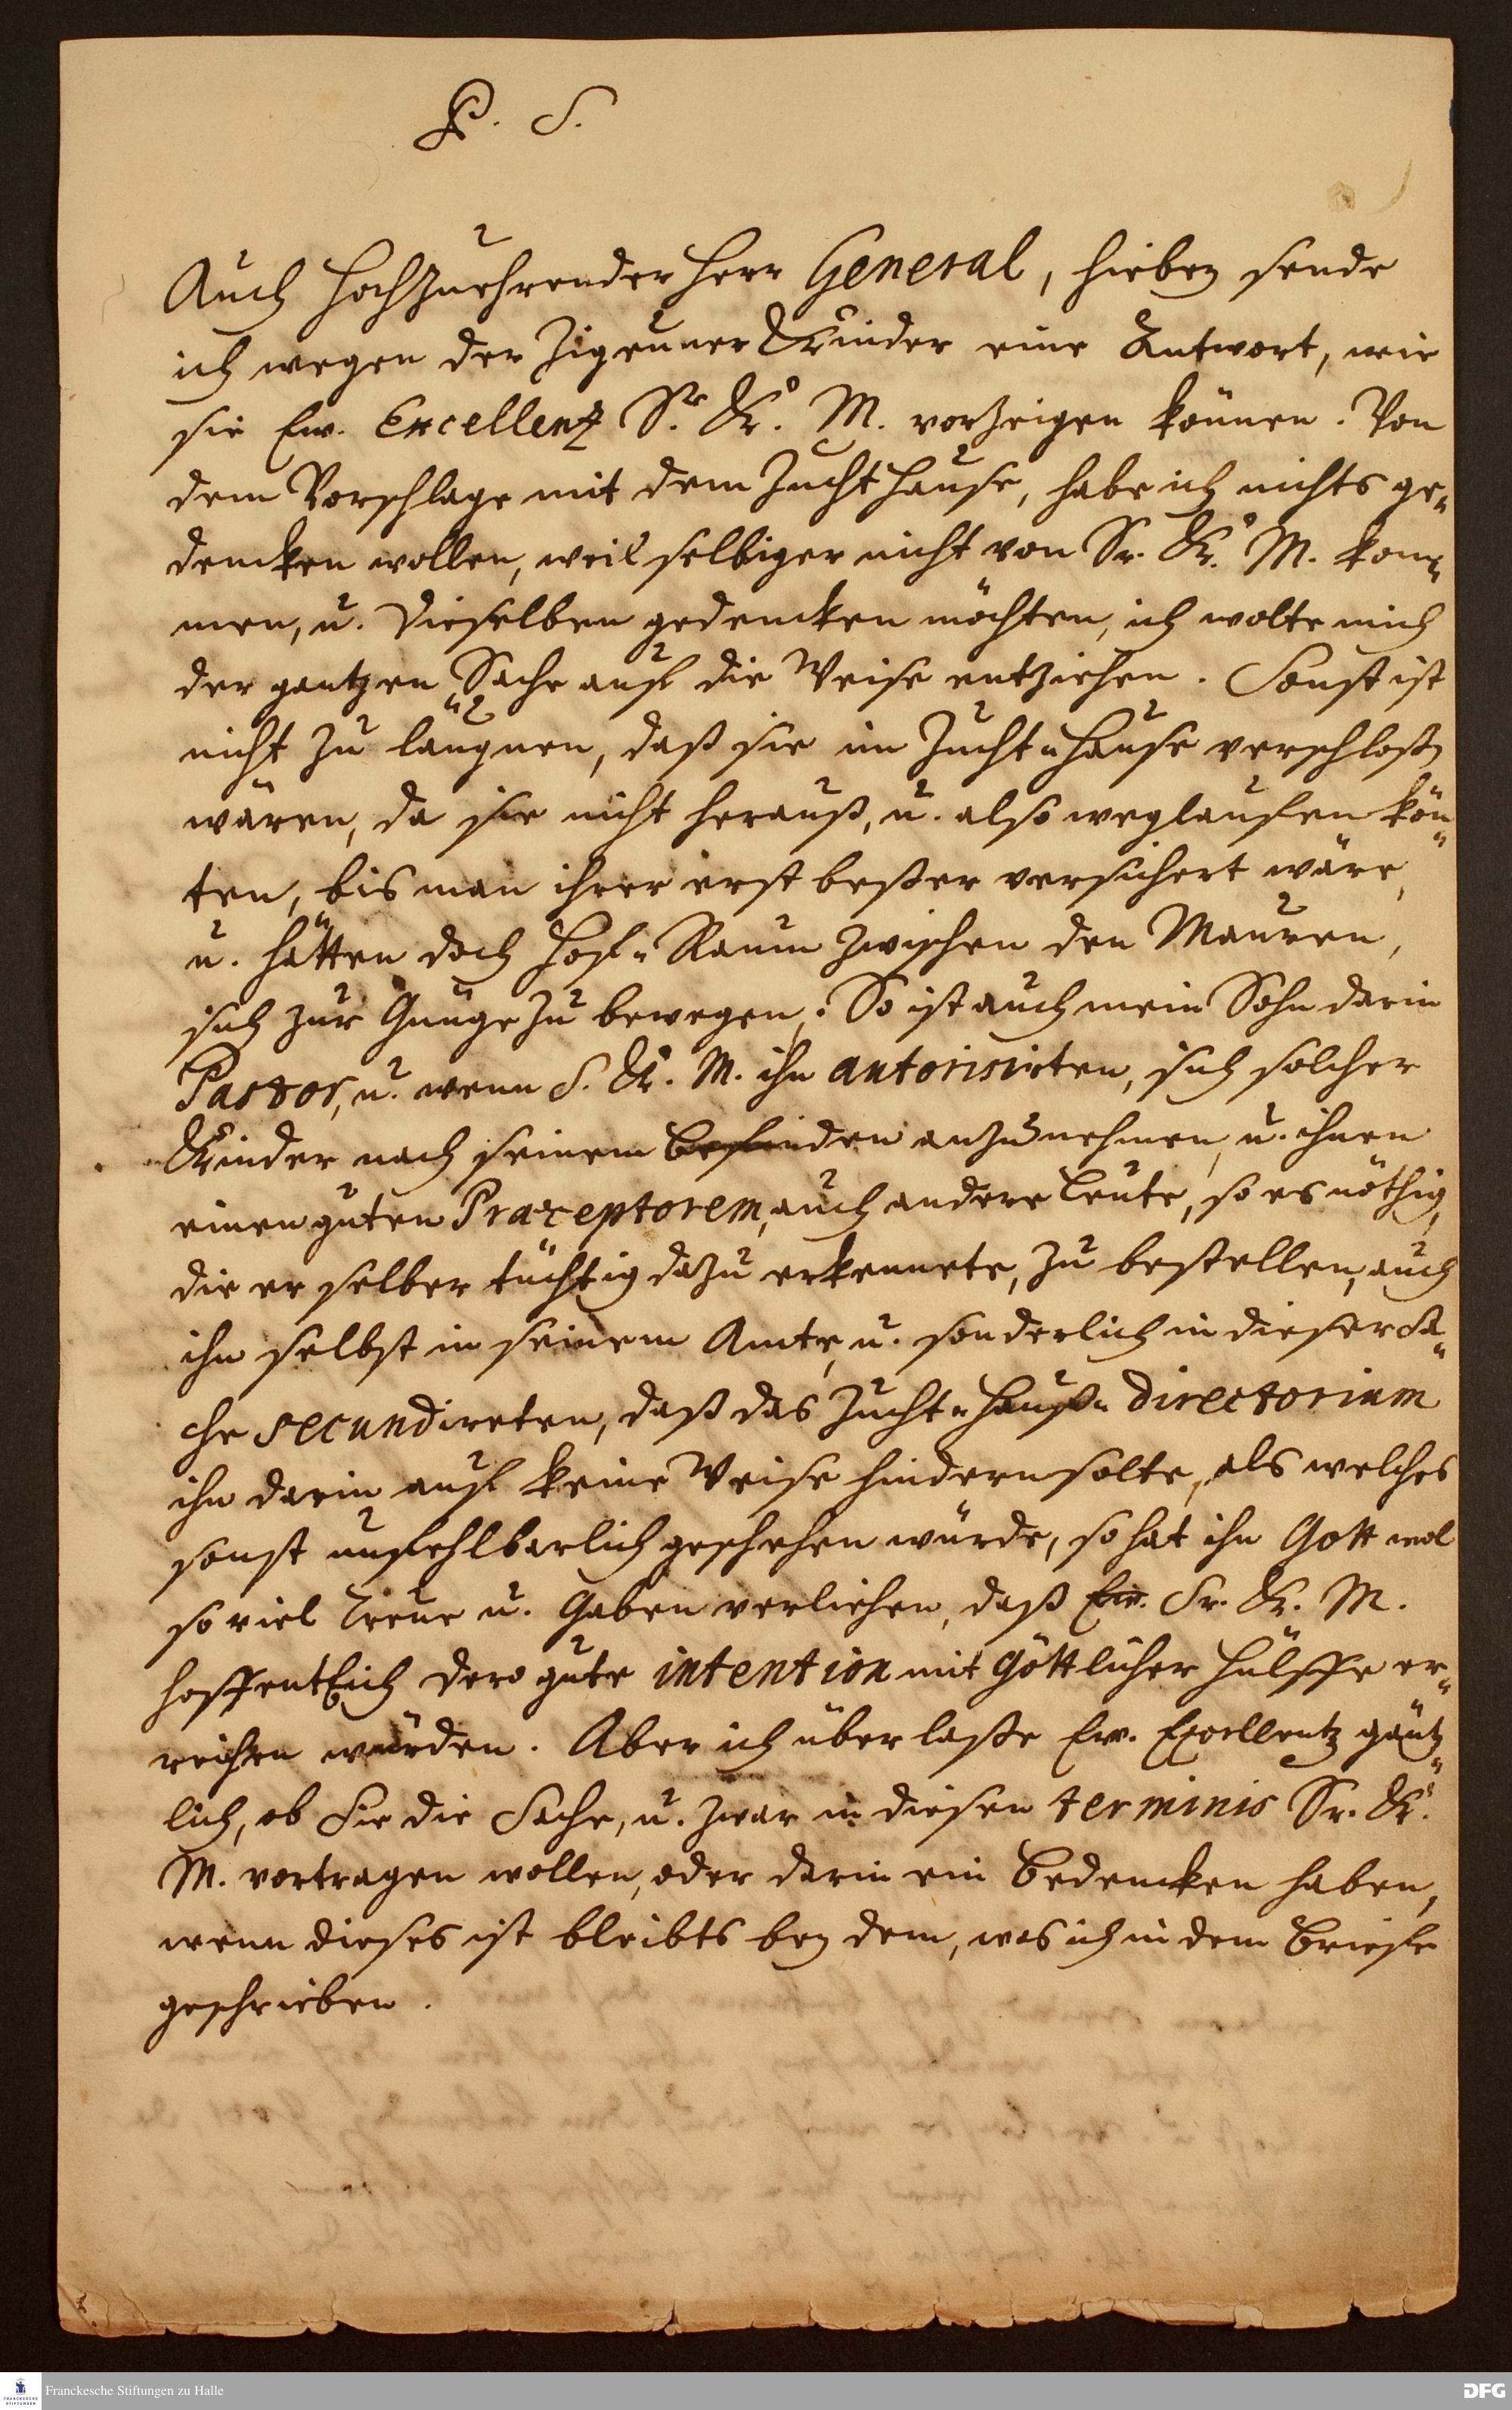 P. S.
Auch Hochzuehrender Herr General, hiebey sende
ich wegen der Zigeuner Kinder eine Antwort, wie
sie Ew. Excellenz Sr. K. M. vorzeigen können. Von
dem Vorschlage mit dem Zucht Hause, habe ich nichts ge„
dencken wollen, weil selbiger nicht von Sr. K. M. kom„
men, u. Dieselben gedencken möchten, ich wolte mich
der gantzen Sache auf die Weise entziehen. Sonst ist
nicht zu läugnen, daß sie im Zucht„Hause verschloßen
wären, da sie nicht herauß, u. also weglaufen kön„
ten, bis man ihrer erst beßer versichert wäre,
u. hätten doch Hof„Raum zwischen den Mauren,
sich zur Gnüge zu bewegen: So ist auch mein Sohn darin
Pastor, u. wenn S. K. M. ihn autorisirten, sich solcher
Kinder nach seinem befinden anzunehmen, u. ihnen
einen guten Præceptorem, auch andere Leute, so es nöthig,
die er selber tüchtig dazu erkennete, zu bestellen, auch
ihn selbst in seinem Amte, u. sonderlich in dieser Sa„
che secundireten, daß das Zucht„Hauß„directorium
ihn darin auf keine Weise hindern solte, als welches
sonst unfehlbarlich geschehen würde, so hat ihn Gott wol
so viel Treue u. Gaben verliehen, daß Ew. Sr. K. M.
hoffentlich dero gute intention mit Göttlicher Hülffe er„
reichen würden. Aber ich überlaße Ew. Excellentz gäntz„
lich, ob Sie die Sache, u. zwar in diesen terminis Sr. K.
M. vortragen wollen, oder darin ein Bedencken haben,
wenn dieses ist bleibts bey dem, was ich in dem Briefe
geschrieben.
Franckesche Stiftungen zu Halle
FRANCKESCHE STIFTUNGEN
DFG